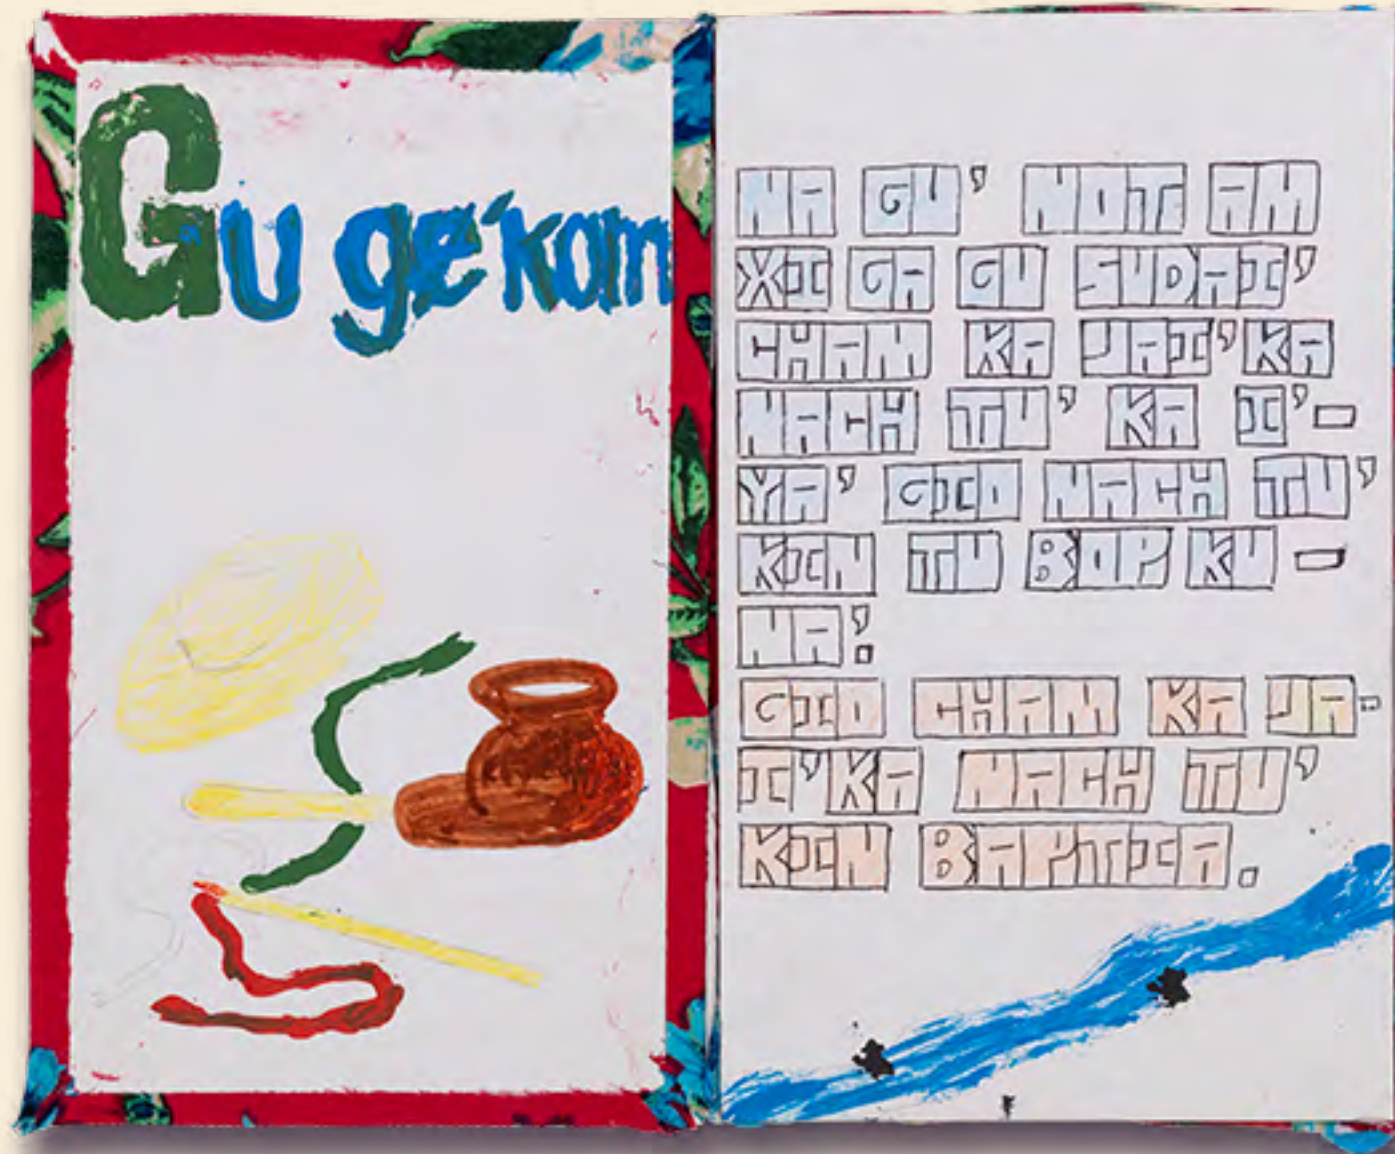 Gu ge'kam
NA GU' NOT AM
XI GA GU SUDAI'
CHAM KA JAI'KA
NACH TU' KA I'-
YA' GIO NACH TU'
KIN TU BOP KU-
NA'.
GIO CHAM KA JA-
I'KA NACH TU'
KIN BAPTIA.